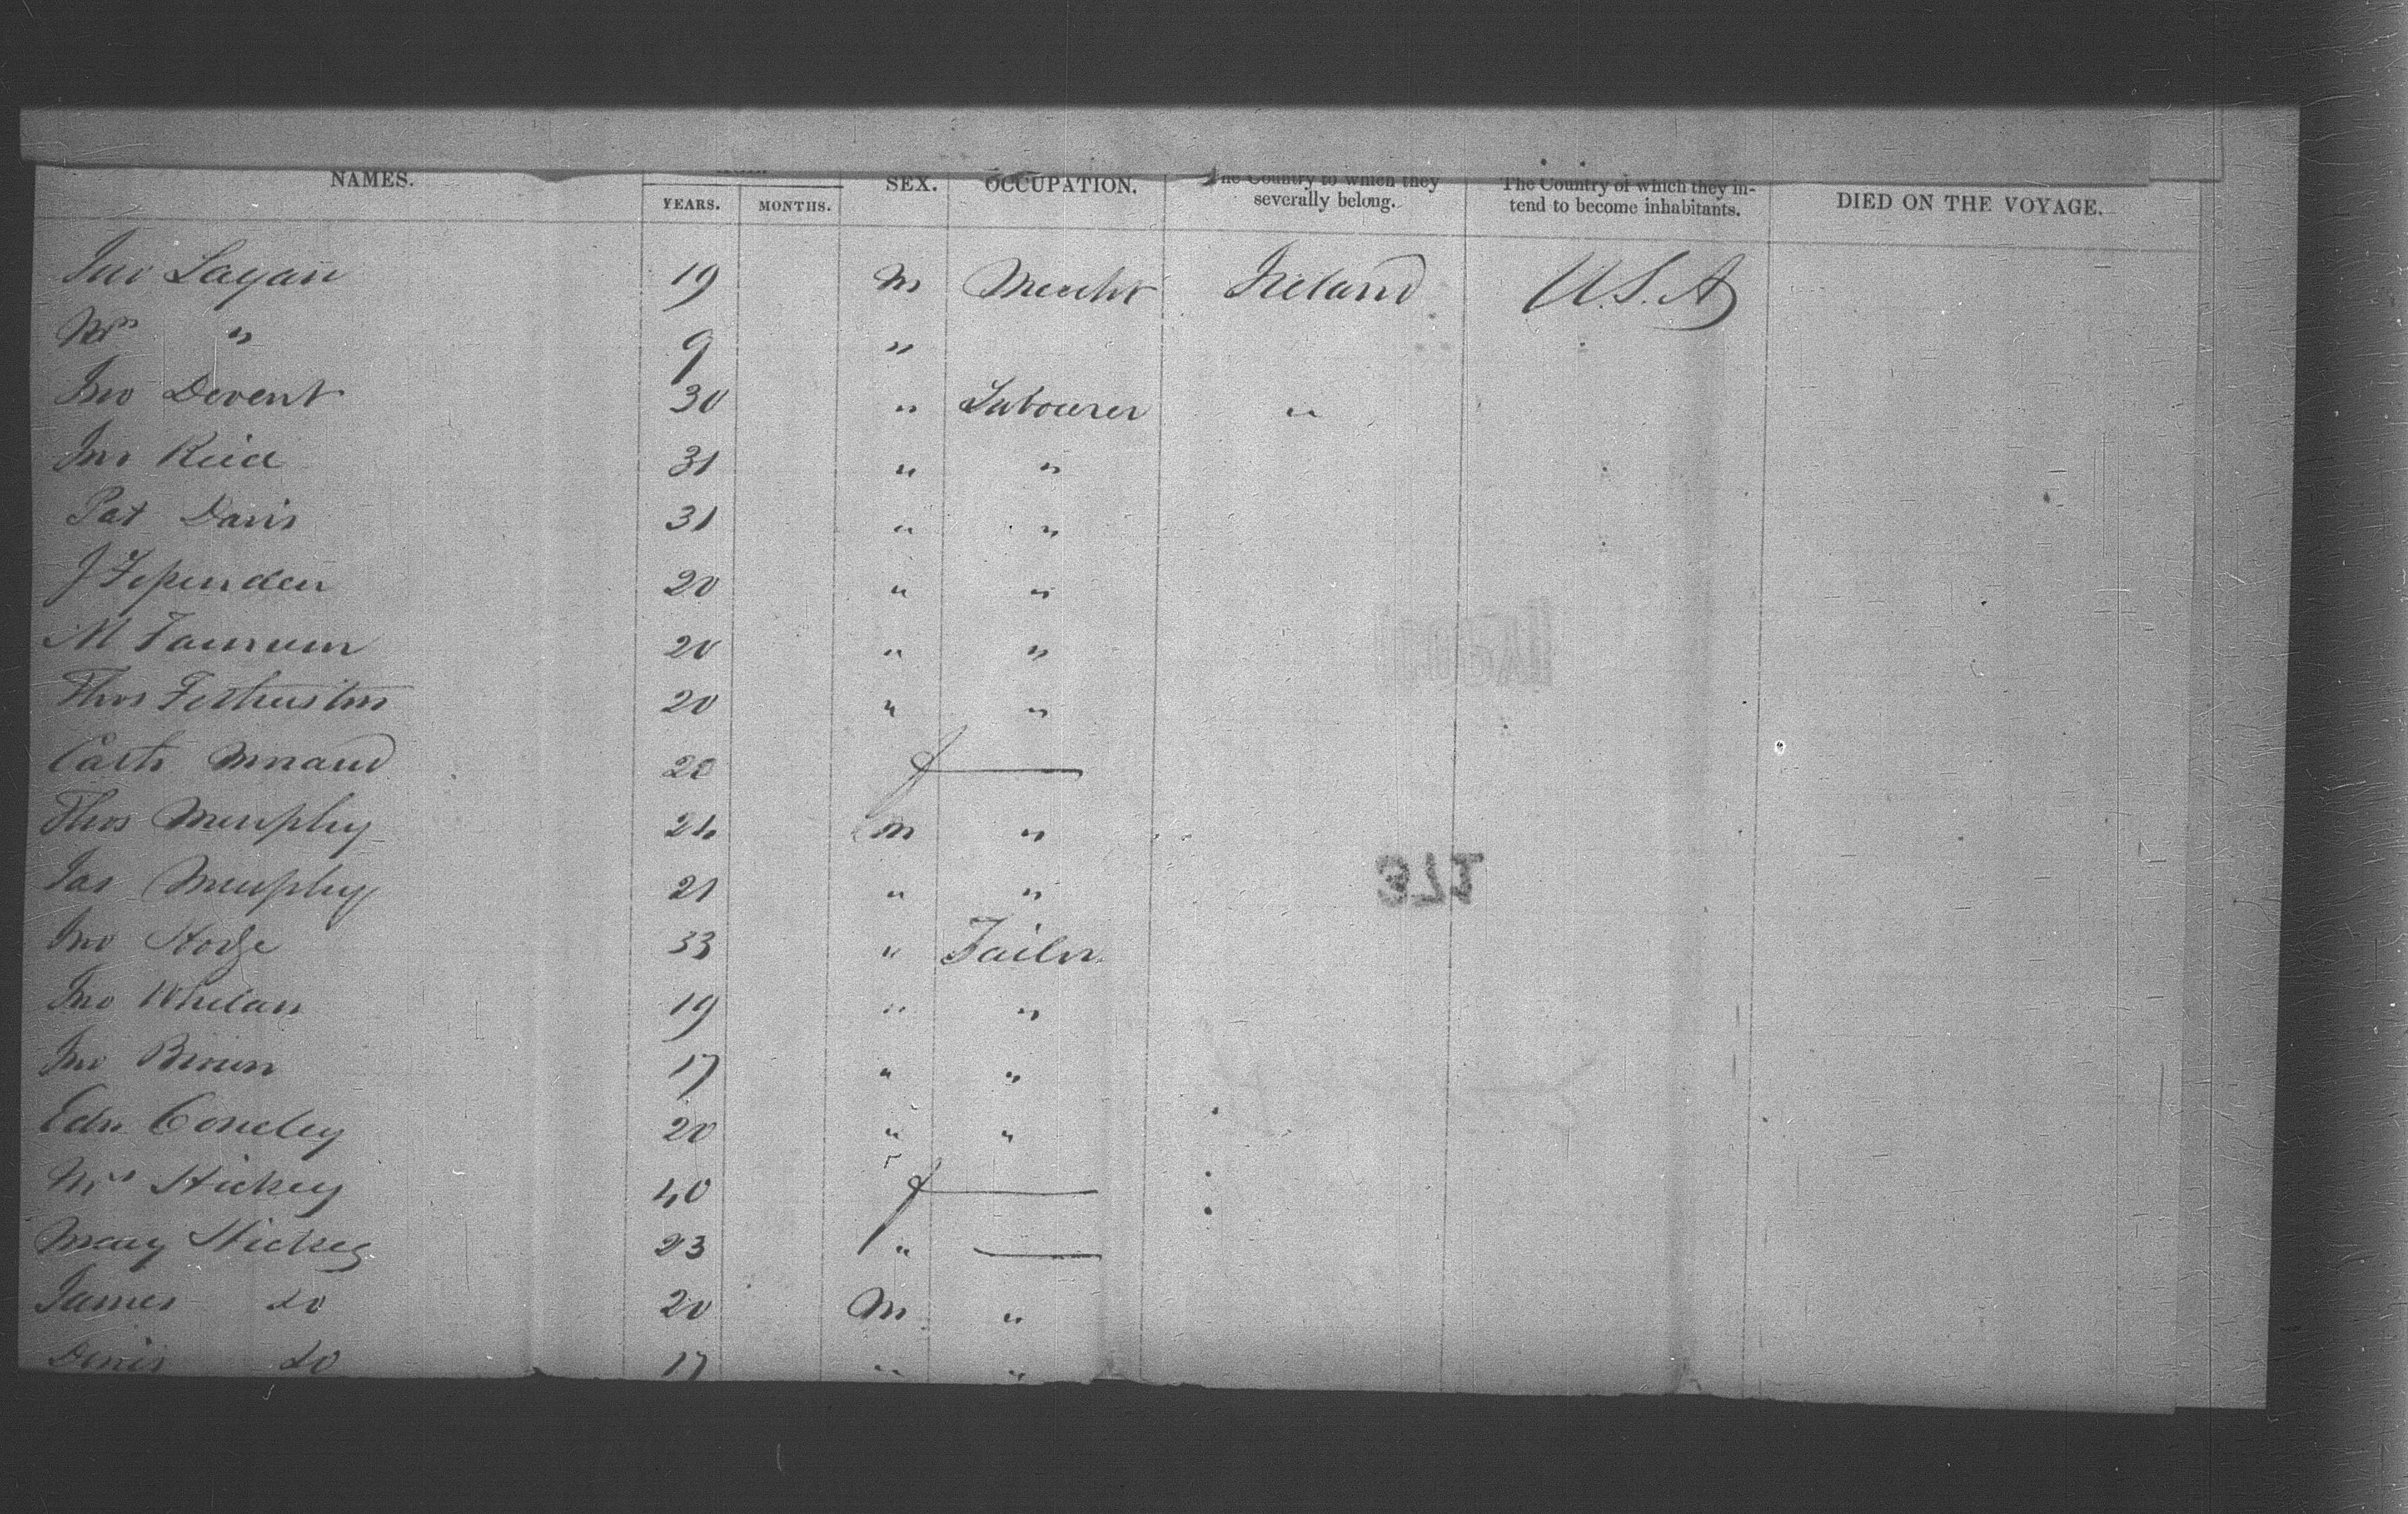 NAMES. YEARS. MONTHS. SEX. OCCUPATION. The Country to which they severally belong. The Country of which they intend to become inhabitants. DIED ON THE VOYAGE.
Jno Lagan 19 M Mercht Ireland U.S.A
Wm " 9 "
Jno Devent 30 " Labourer "
Jno Reid 31 " "
Pat Davis 31 " "
J 20 " "
M 20 " "
Thos 20 " "
Cath 20 f —
Thos Murphy 24 M "
Jas Murphy 21 " "
Jno Hodge 33 " Tailor
Jno Whelan 19 " "
Jno Brown 17 " "
Edw Coneley 20 " "
Mrs Hickey 40 f —
Mary Hickey 23 " —
James do 20 M "
Denis do 17 " "
371